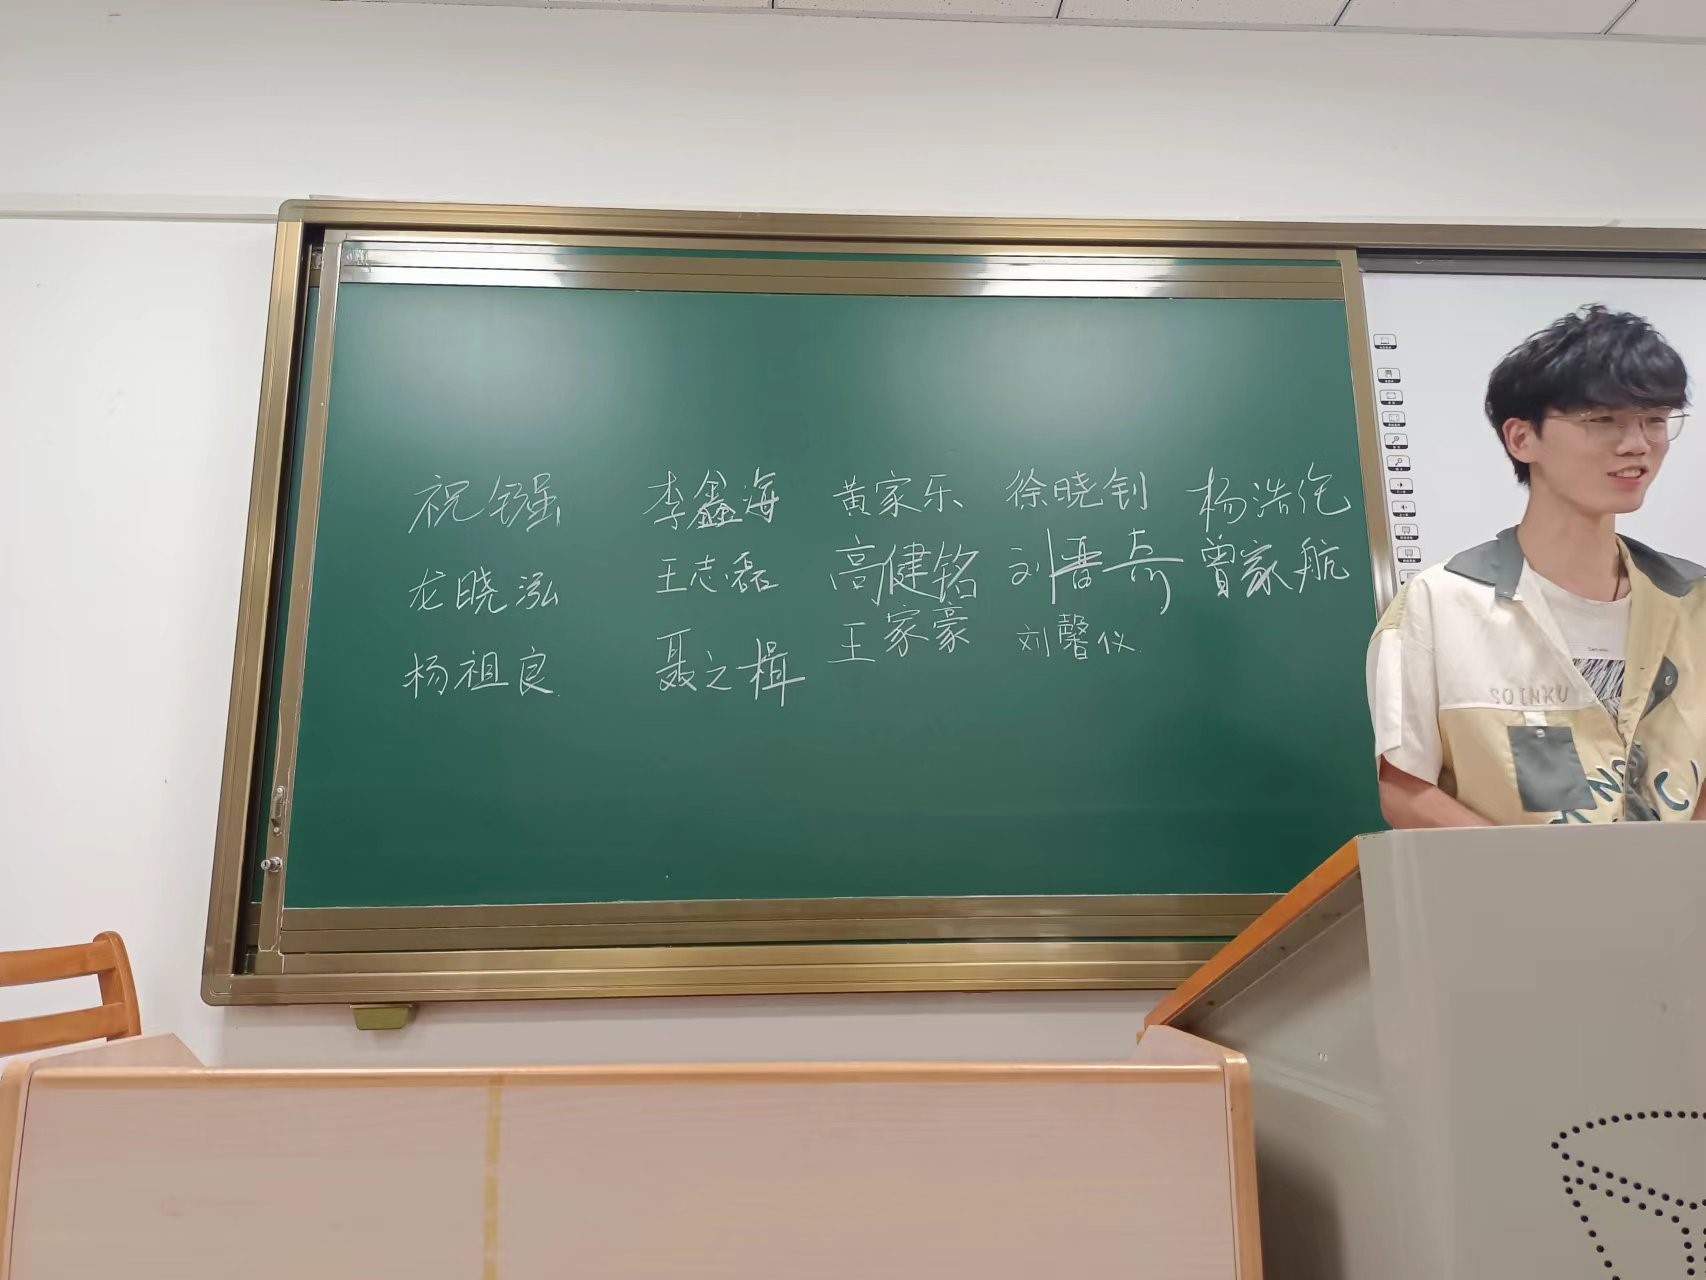 祝钰强 李鑫海 黄家乐 徐晓钊 杨浩伦
龙晓泓 王志磊 高健铭 刘晋奇 曾家航
杨祖良 聂之楫 王家豪 刘馨仪
SOINKU